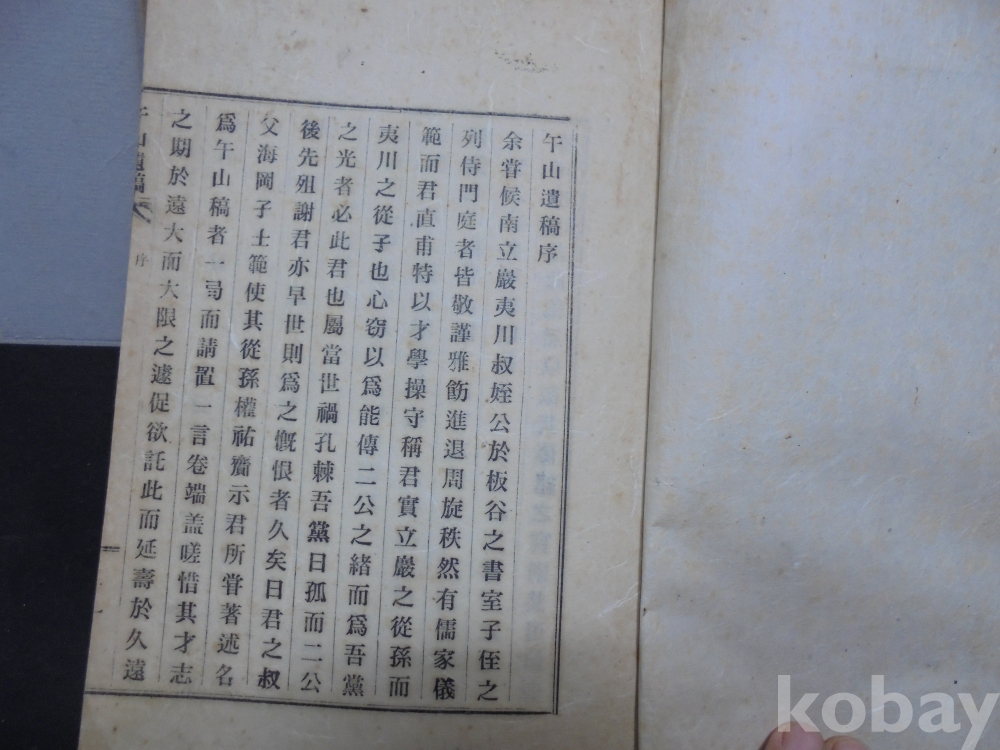 午山遺稿序
余甞候南立巖夷川叔姪公於板谷之書室子侄之
列侍門庭者皆敬謹雅飭進退周旋秩然有儒家儀
範而君直甫特以才學操守稱君實立巖之從孫而
夷川之從子也心窃以爲能傳二公之緖而爲吾黨
之光者必此君也屬當世禍孔棘吾黨日孤而二公
後先殂謝君亦早世則爲之慨恨者久矣日君之叔
父海岡子士範使其從孫權祐齎示君所甞著述名
爲午山稿者一局而請置一言卷端盖嗟惜其才志
之期於遠大而大限之遽促欲託此而延壽於久遠
午山遺稿 序
kobay